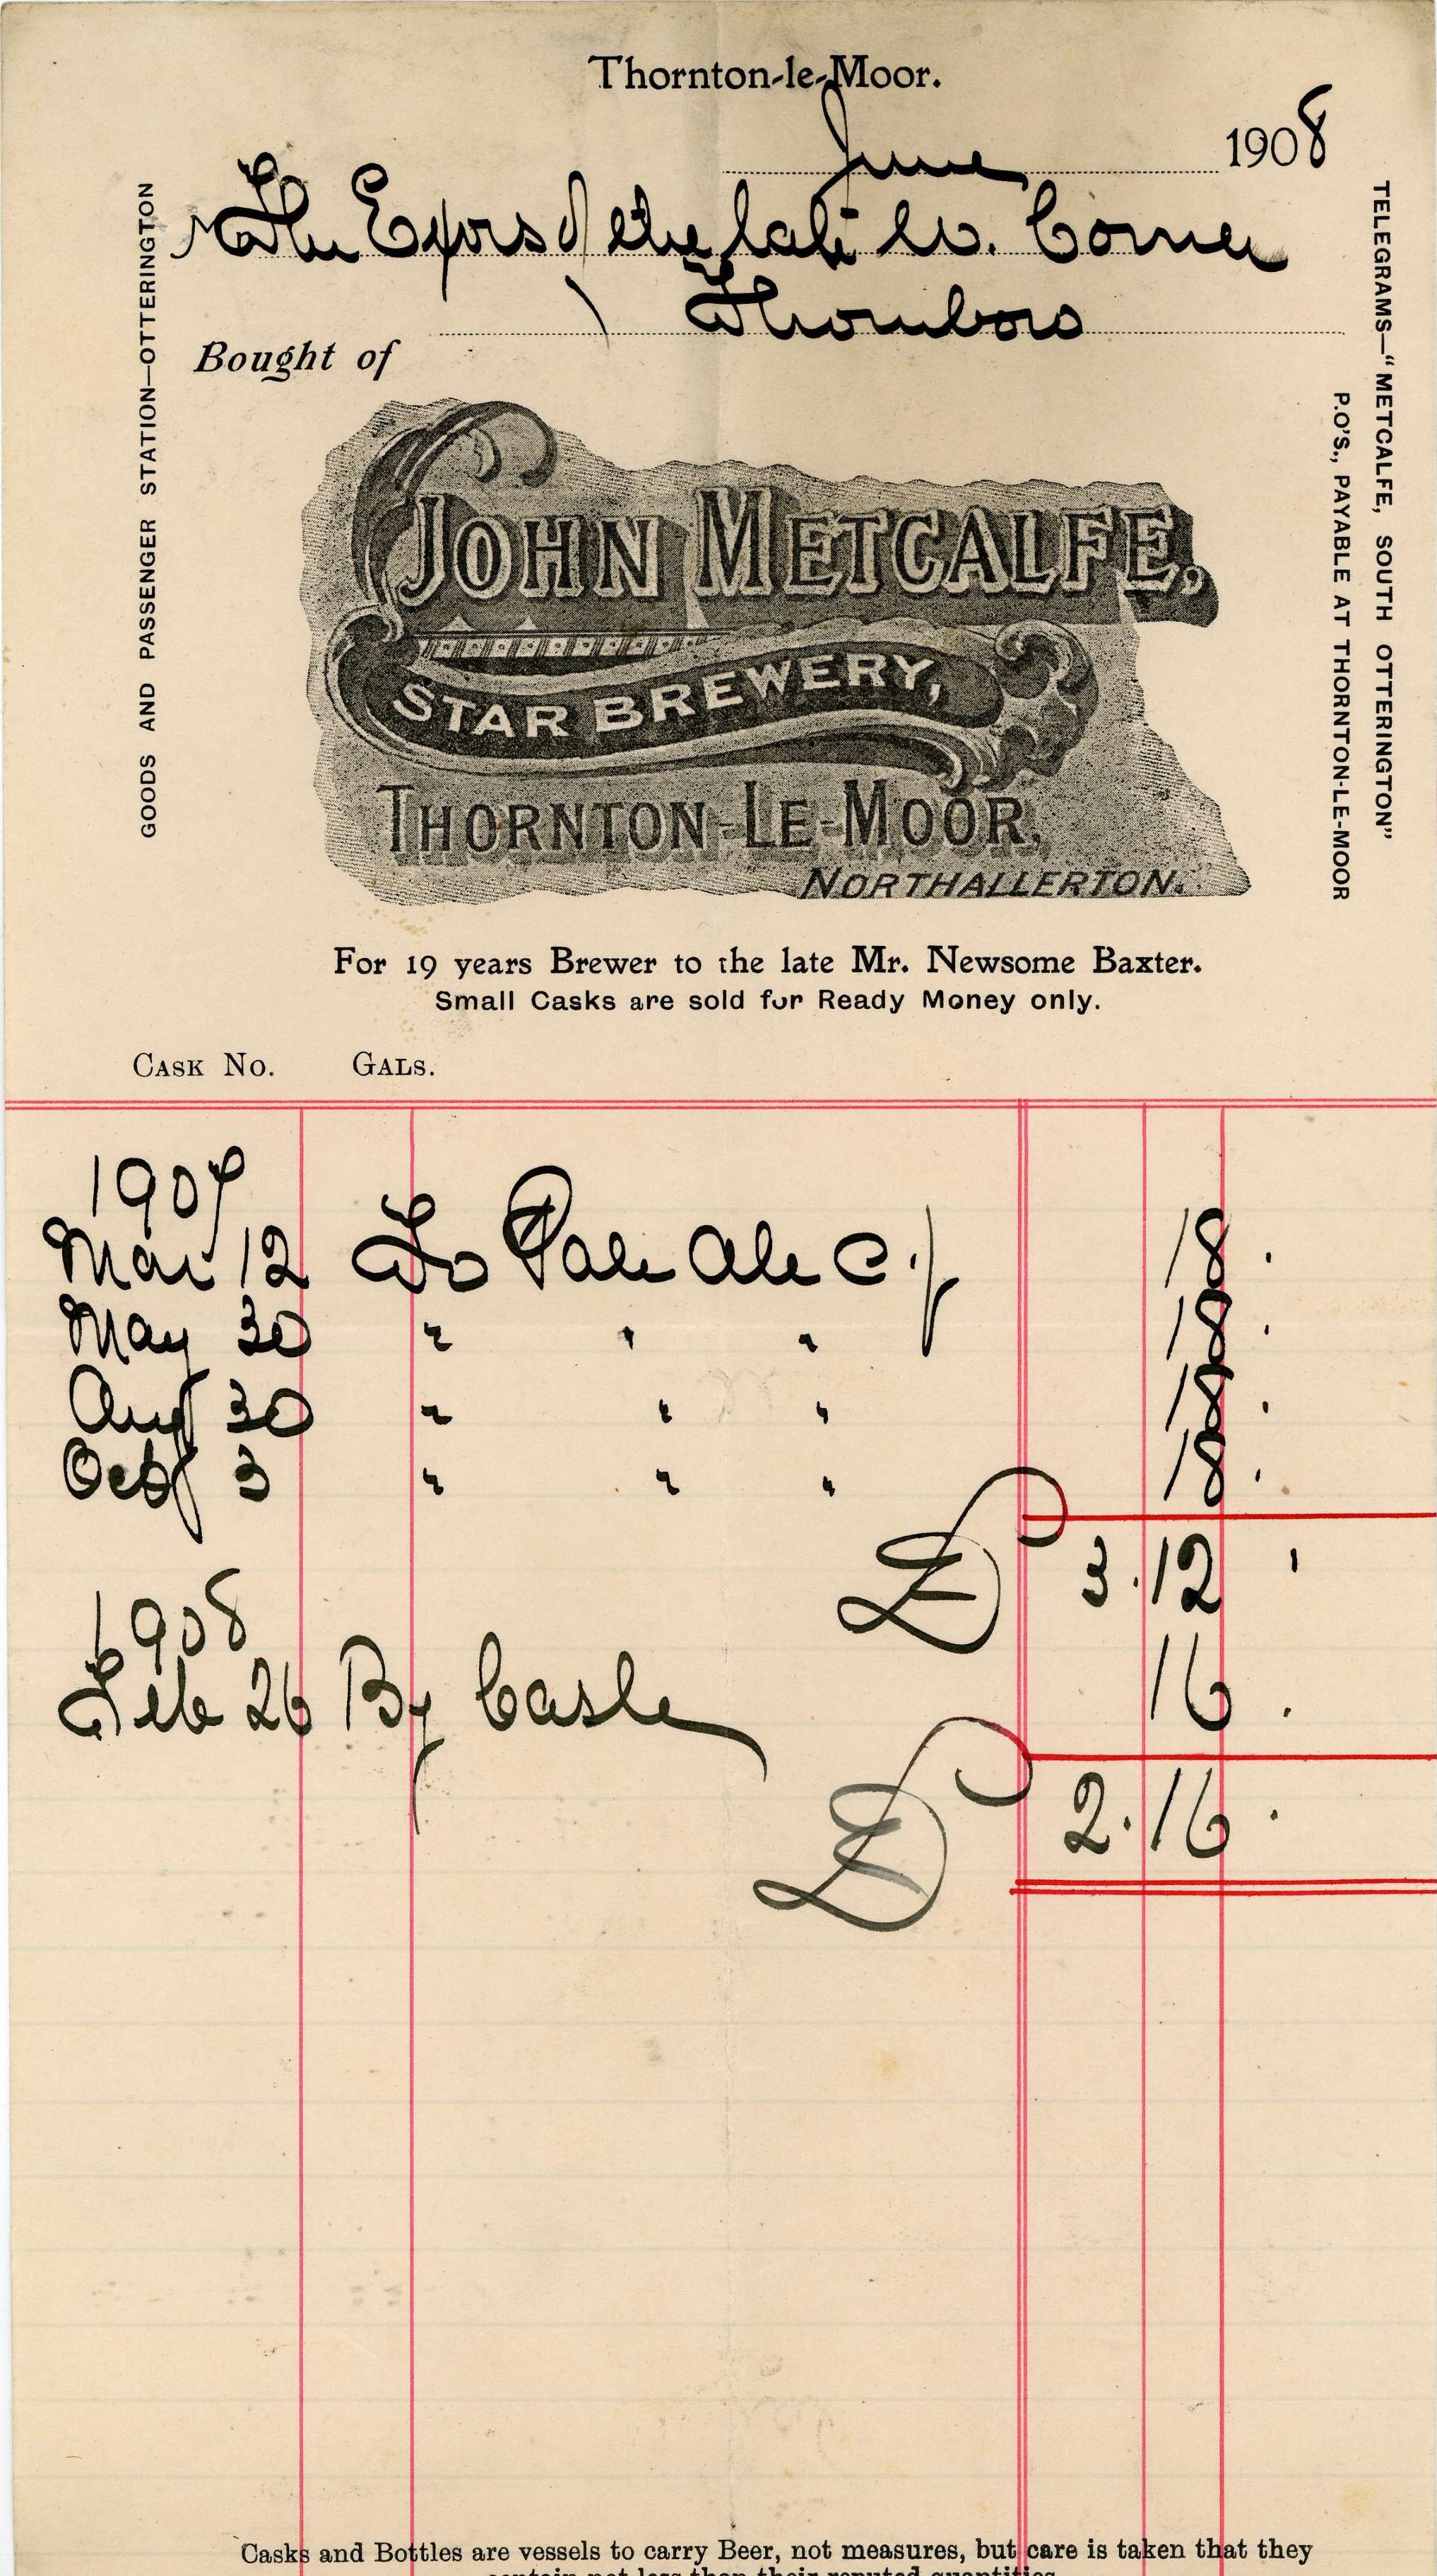 Thornton-le-Moor.
June 1908
The Exors of the late W. Corner
Thornboro
Bought of
GOODS AND PASSENGER STATION—OTTERINGTON
TELEGRAMS—"METCALFE, SOUTH OTTERINGTON"
P.O'S., PAYABLE AT THORNTON-LE-MOOR
JOHN METCALFE,
STAR BREWERY,
THORNTON-LE-MOOR,
NORTHALLERTON.
For 19 years Brewer to the late Mr. Newsome Baxter.
Small Casks are sold for Ready Money only.
CASK NO. GALS.
1907
Mar 12 To Pale Ale 18 .
May 30 " " " 18 .
Aug 30 " " " 18 .
Oct 3 " " " 18 .
£ 3.12 '
1908
Feb 26 By Cash 16 .
£ 2.16 .
Casks and Bottles are vessels to carry Beer, not measures, but care is taken that they
contain not less than their reputed quantities